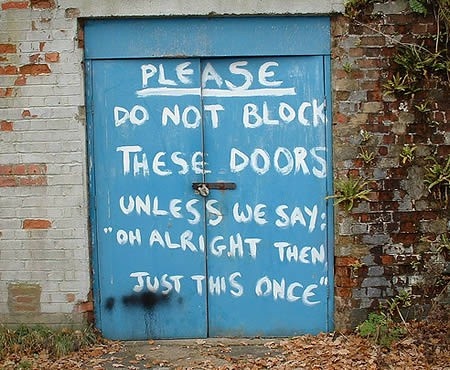 PLEASE
DO NOT BLOCK
THESE DOORS
UNLESS WE SAY:
"OH ALRIGHT THEN
JUST THIS ONCE"